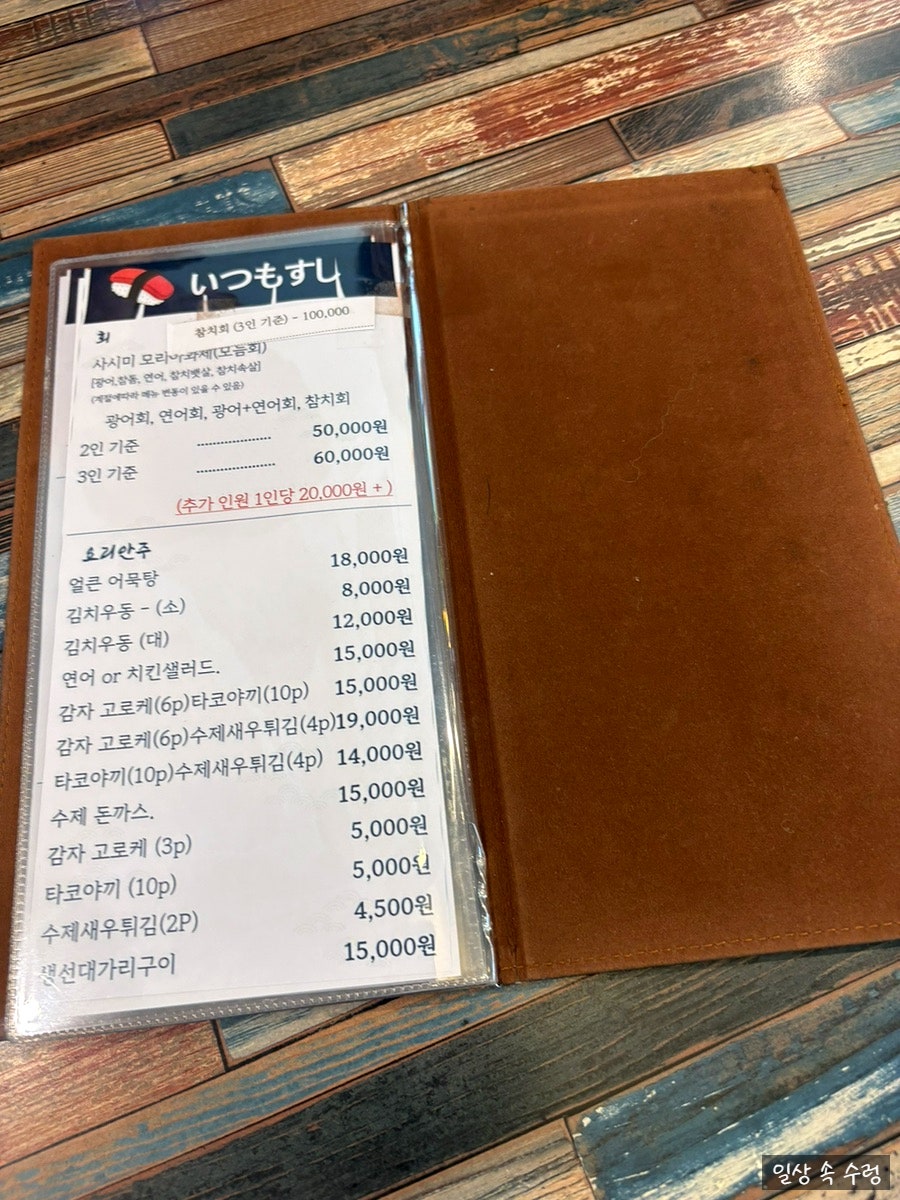 いつもすし
참치회 (3인 기준) - 100,000
회
사시미 모리아와세(모듬회)
[광어,참돔, 연어, 참치뱃살, 참치속살]
(계절에따라 메뉴 변동이 있을 수 있음)
광어회, 연어회, 광어+연어회, 참치회
2인 기준 .................... 50,000원
3인 기준 ..................... 60,000원
(추가 인원 1인당 20,000원 + )
요리안주
얼큰 어묵탕 18,000원
김치우동 - (소) 8,000원
김치우동 (대) 12,000원
연어 or 치킨샐러드. 15,000원
감자 고로케(6p)타코야끼(10p) 15,000원
감자 고로케(6p)수제새우튀김(4p)19,000원
타코야끼(10p)수제새우튀김(4p) 14,000원
수제 돈까스. 15,000원
감자 고로케 (3p) 5,000원
타코야끼 (10p) 5,000원
수제새우튀김(2P) 4,500원
생선대가리구이 15,000원
일상 속 수렁